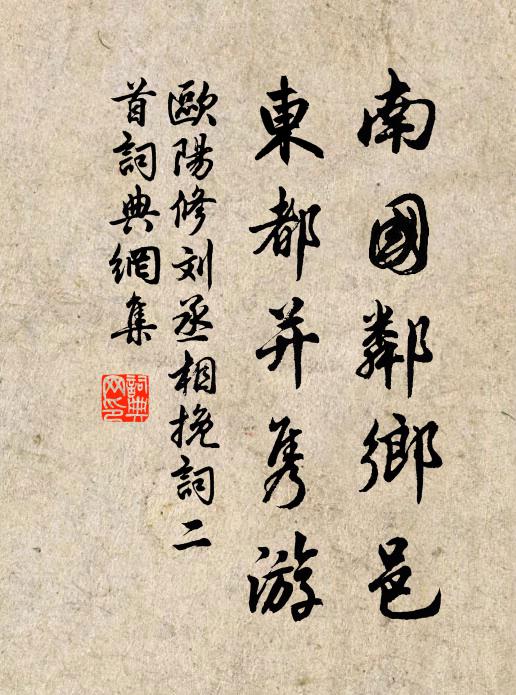 南國鄰鄉邑
東都并隽游
歐陽修刘丞相挽詞二
首詞典網集
詞典
网印